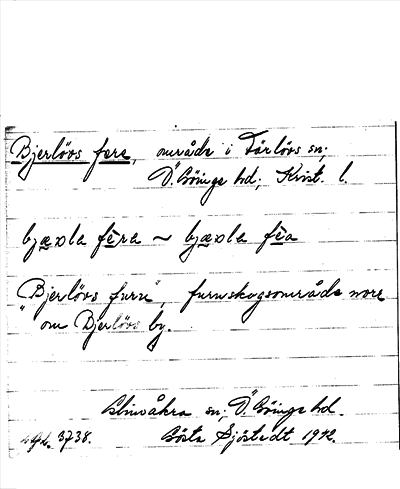 Bjerlövs fere, område i Färlövs sn;
Ö. Göinge hd; Krist. l.
bjæola fèra ~ bjæola fèa
"Bjerlövs furu", furuskogsområde norr
om Bjerlövs by.
Glimåkra sn; Ö. Göinge hd.
3738. Gösta Sjöstedt 1942.